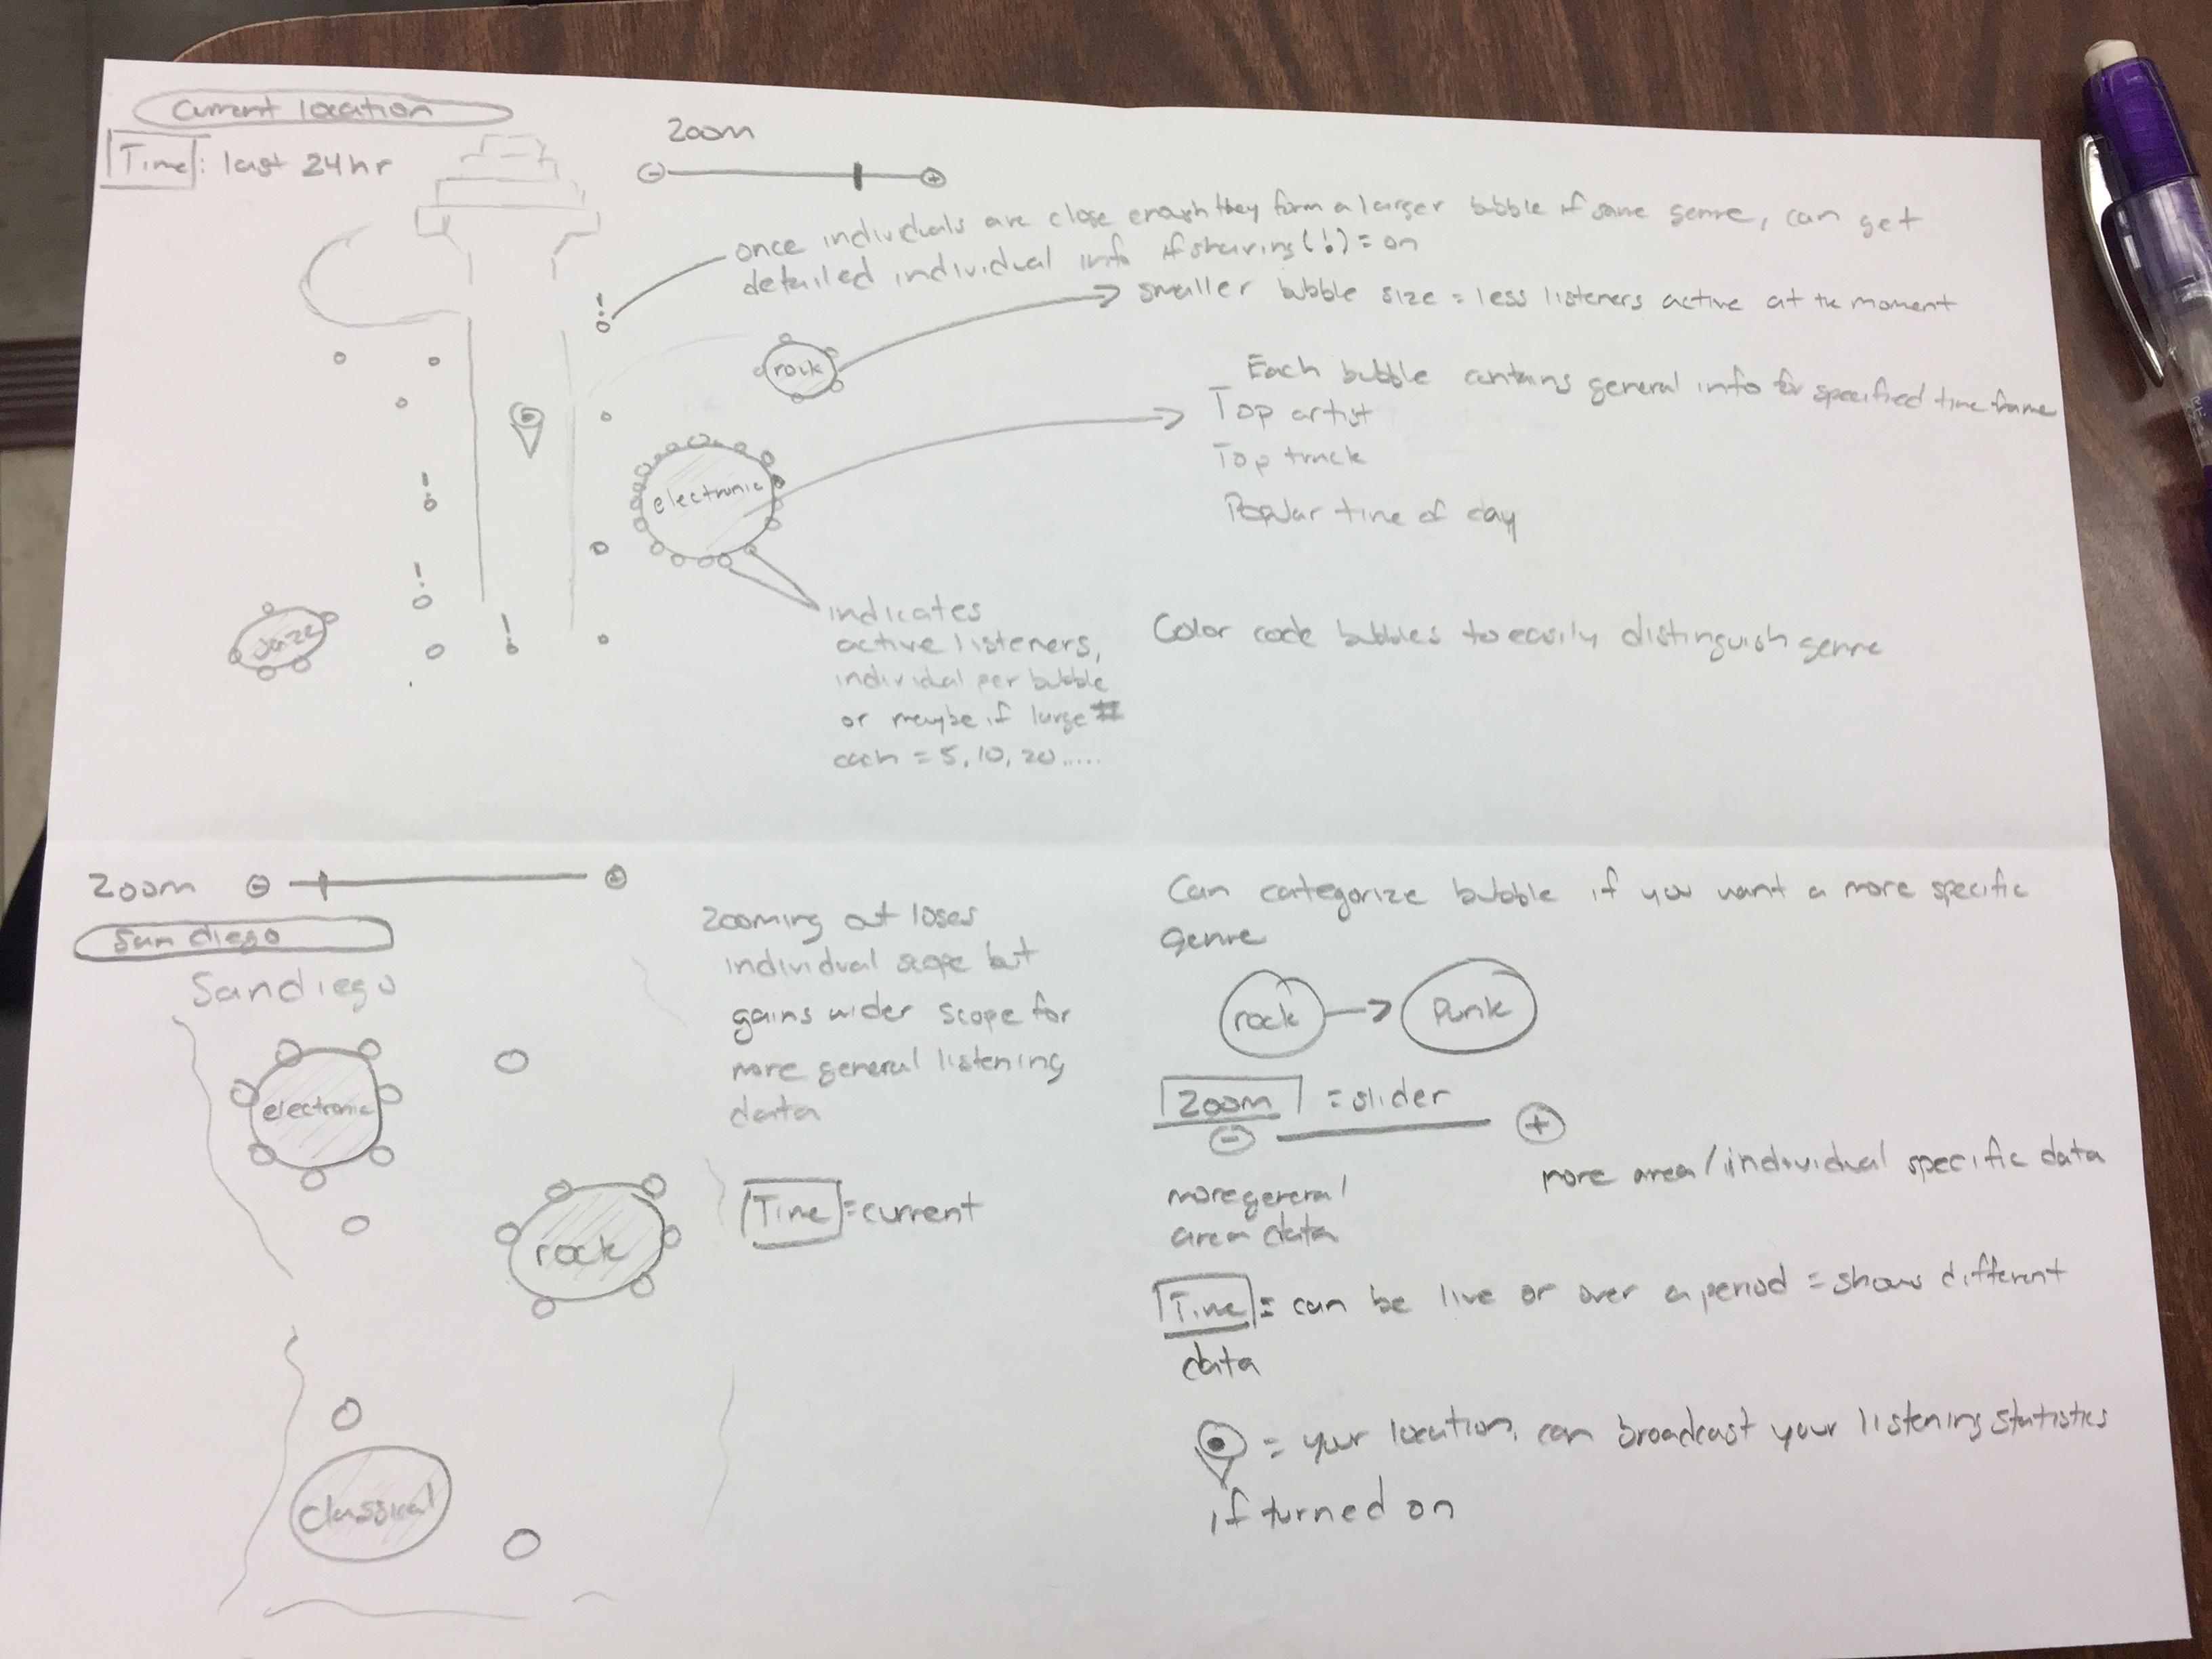 Current location
Time: last 24hr
zoom
- +
once individuals are close enough they form a larger bubble if same genre, can get
detailed individual info if sharing (b) = on
smaller bubble size = less listeners active at the moment
rock
electronic
Each bubble contains general info for specified time frame
Top artist
Top track
Popular time of day
indicates
active listeners,
individual per bubble
or maybe if large #
each = 5, 10, 20....
Color code bubbles to easily distinguish genre
zoom - +
San diego
San diego
electronic
rock
Classical
zooming out loses
individual scope but
gains wider scope for
more general listening
data
Time = current
Can categorize bubble if you want a more specific
genre
rock → Punk
zoom = slider
- +
more general
area data
more area/individual specific data
Time = can be live or over a period = shows different
data
= your location, can broadcast your listening statistics
if turned on